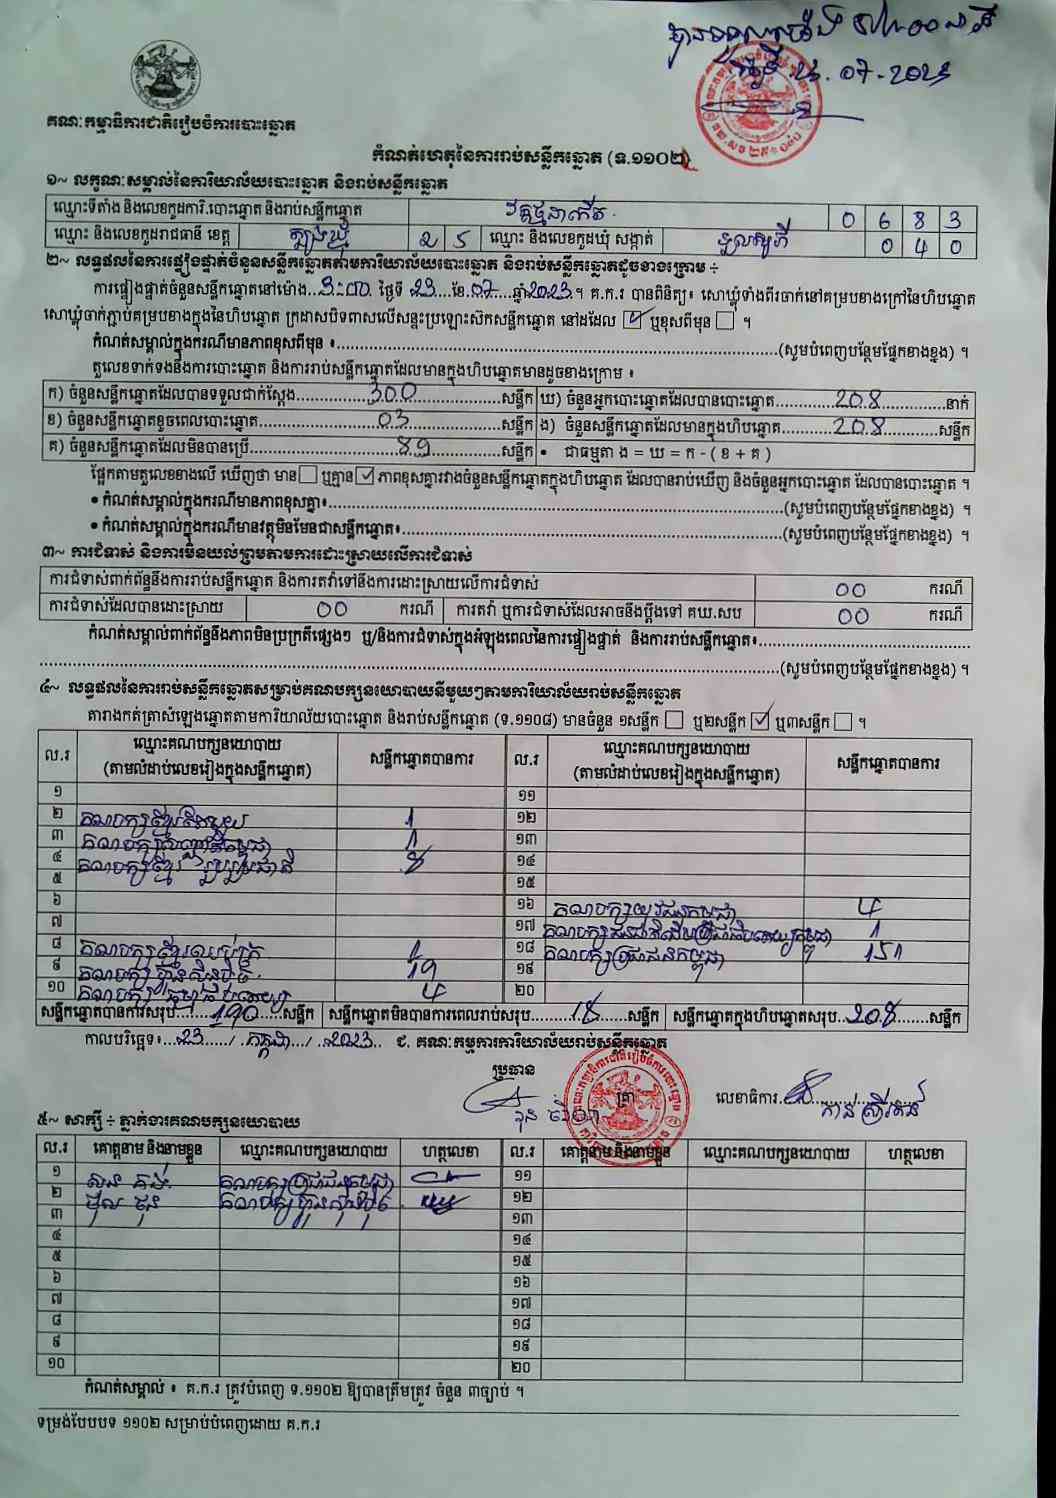 ថ្ងៃទី 25.07-2023
គណៈកម្មាធិការជាតិរៀបចំការបោះឆ្នោត
កំណត់ហេតុនៃការរាប់សន្លឹកឆ្នោត (ទ.១១០២)
១~ លក្ខណៈសម្គាល់នៃការិយាល័យបោះឆ្នោត និងរាប់សន្លឹកឆ្នោត
ឈ្មោះទីតាំង និងលេខកូដការិ.បោះឆ្នោត និងរាប់សន្លឹកឆ្នោត 0 6 8 3
ឈ្មោះ និងលេខកូដរាជធានី ខេត្ត ត្បូងឃ្មុំ 2 5 ឈ្មោះ និងលេខកូដឃុំ សង្កាត់ 0 4 0
២~ លទ្ធផលនៃការផ្ទៀងផ្ទាត់ចំនួនសន្លឹកឆ្នោតតាមការិយាល័យបោះឆ្នោត និងរាប់សន្លឹកឆ្នោតដូចខាងក្រោម ÷
ការផ្ទៀងផ្ទាត់ចំនួនសន្លឹកឆ្នោតនៅម៉ោង...3:00 ថ្ងៃទី 23....ខែ.07....ឆ្នាំ2023.។ គ.ក.រ បានពិនិត្យ៖ សោឃ្លុំទាំងពីរចាក់នៅគម្របខាងក្រៅនៃហិបឆ្នោត
សោឃ្លុំចាក់ភ្ជាប់គម្របខាងក្នុងនៃហិបឆ្នោត ក្រដាសបិទពាសលើសន្ទះប្រឡោះស៊កសន្លឹកឆ្នោត នៅដដែល ☑ ឬខុសពីមុន ☐ ។
កំណត់សម្គាល់ក្នុងករណីមានភាពខុសពីមុន ៖....................(សូមបំពេញបន្ថែមផ្នែកខាងខ្នង) ។
តួលេខទាក់ទងនឹងការបោះឆ្នោត និងការរាប់សន្លឹកឆ្នោតដែលមានក្នុងហិបឆ្នោតមានដូចខាងក្រោម ៖
ក) ចំនួនសន្លឹកឆ្នោតដែលបានទទួលជាក់ស្តែង............300............សន្លឹក ឃ) ចំនួនអ្នកបោះឆ្នោតដែលបានបោះឆ្នោត............208............នាក់
ខ) ចំនួនសន្លឹកឆ្នោតខូចពេលបោះឆ្នោត............03............សន្លឹក ង) ចំនួនសន្លឹកឆ្នោតដែលមានក្នុងហិបឆ្នោត............208............សន្លឹក
គ) ចំនួនសន្លឹកឆ្នោតដែលមិនបានប្រើ............89............សន្លឹក • ជាធម្មតា ង = ឃ = ក - ( ខ + គ )
ផ្អែកតាមតួលេខខាងលើ ឃើញថា មាន☐ ឬគ្មាន☑ ភាពខុសគ្នារវាងចំនួនសន្លឹកឆ្នោតក្នុងហិបឆ្នោត ដែលបានរាប់ឃើញ និងចំនួនអ្នកបោះឆ្នោត ដែលបានបោះឆ្នោត ។
• កំណត់សម្គាល់ក្នុងករណីមានភាពខុសគ្នា៖....................(សូមបំពេញបន្ថែមផ្នែកខាងខ្នង) ។
• កំណត់សម្គាល់ក្នុងករណីមានវត្ថុមិនមែនជាសន្លឹកឆ្នោត៖....................(សូមបំពេញបន្ថែមផ្នែកខាងខ្នង) ។
៣~ ការជំទាស់ និងការមិនយល់ព្រមតាមការដោះស្រាយលើការជំទាស់
ការជំទាស់ពាក់ព័ន្ធនឹងការរាប់សន្លឹកឆ្នោត និងការតវ៉ាទៅនឹងការដោះស្រាយលើការជំទាស់ 00 ករណី
ការជំទាស់ដែលបានដោះស្រាយ 00 ករណី ការតវ៉ា ឬការជំទាស់ដែលអាចនឹងប្តឹងទៅ គឃ.សប 00 ករណី
កំណត់សម្គាល់ពាក់ព័ន្ធនឹងភាពមិនប្រក្រតីផ្សេងៗ ឬ/និងការជំទាស់ក្នុងអំឡុងពេលនៃការផ្ទៀងផ្ទាត់ និងការរាប់សន្លឹកឆ្នោត៖....................
....................(សូមបំពេញបន្ថែមផ្នែកខាងខ្នង) ។
៤~ លទ្ធផលនៃការរាប់សន្លឹកឆ្នោតសម្រាប់គណបក្សនយោបាយនីមួយៗតាមការិយាល័យរាប់សន្លឹកឆ្នោត
តារាងកត់ត្រាសំឡេងឆ្នោតតាមការិយាល័យបោះឆ្នោត និងរាប់សន្លឹកឆ្នោត (ទ.១១០៨) មានចំនួន ១សន្លឹក ☐ ឬ២សន្លឹក ☑ ឬ៣សន្លឹក ☐ ។
ល.រ ឈ្មោះគណបក្សនយោបាយ (តាមលំដាប់លេខរៀងក្នុងសន្លឹកឆ្នោត) សន្លឹកឆ្នោតបានការ ល.រ ឈ្មោះគណបក្សនយោបាយ (តាមលំដាប់លេខរៀងក្នុងសន្លឹកឆ្នោត) សន្លឹកឆ្នោតបានការ
១ ១១
២ គណបក្សខ្មែរតែមួយ 1 ១២
៣ 1 ១៣
៤ គណបក្សខ្មែរ 8 ១៤
៥ ១៥
៦ ១៦ គណបក្សយុវជនកម្ពុជា 4
៧ ១៧ 1
៨ គណបក្សខ្មែរឈប់ក្រ ១៨ គណបក្សប្រជាជនកម្ពុជា 151
៩ គណបក្សហ្វ៊ុនស៊ិនប៉ិច 19 ១៩
១០ 4 ២០
សន្លឹកឆ្នោតបានការសរុប......190......សន្លឹក សន្លឹកឆ្នោតមិនបានការពេលរាប់សរុប........18......សន្លឹក សន្លឹកឆ្នោតក្នុងហិបឆ្នោតសរុប..208......សន្លឹក
កាលបរិច្ឆេទ៖...23...../ .កក្កដា.../ ..2023.. ជ. គណៈកម្មការការិយាល័យរាប់សន្លឹកឆ្នោត
ប្រធាន
ត្រា
លេខាធិការ
៥~ សាក្សី ÷ ភ្នាក់ងារគណបក្សនយោបាយ
ល.រ គោត្តនាម និងនាមខ្លួន ឈ្មោះគណបក្សនយោបាយ ហត្ថលេខា ល.រ គោត្តនាម និងនាមខ្លួន ឈ្មោះគណបក្សនយោបាយ ហត្ថលេខា
១ គណបក្សប្រជាជនកម្ពុជា ១១
២ គណបក្សហ្វ៊ុនស៊ិនប៉ិច ១២
៣ ១៣
៤ ១៤
៥ ១៥
៦ ១៦
៧ ១៧
៨ ១៨
៩ ១៩
១០ ២០
កំណត់សម្គាល់ ៖ គ.ក.រ ត្រូវបំពេញ ទ.១១០២ ឱ្យបានត្រឹមត្រូវ ចំនួន ៣ច្បាប់ ។
ទម្រង់បែបបទ ១១០២ សម្រាប់បំពេញដោយ គ.ក.រ